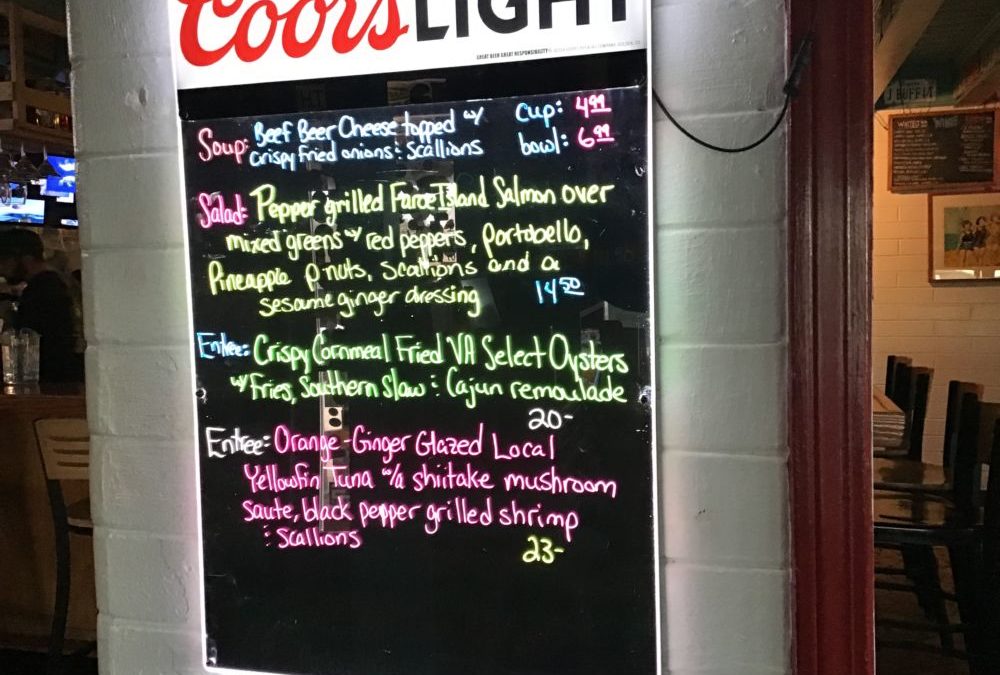 Coors LIGHT
GREAT BEER GREAT RESPONSIBILITY
Soup: Beef Beer Cheese topped w/ cup: 4.99
Crispy Fried onions : Scallions bowl: 6.99
Salad: Pepper grilled Faroe Island Salmon over
mixed greens w/ red peppers, portobello,
Pineapple p nuts, scallions and a
sesame ginger dressing 14.50
Entree: Crispy Cornmeal Fried VA Select Oysters
w/ Fries, Southern Slaw : Cajun remoulade
20-
Entree: Orange-Ginger Glazed Local
Yellowfin Tuna w/a shiitake mushroom
saute, black pepper grilled shrimp
: Scallions
23-
J BUFFET